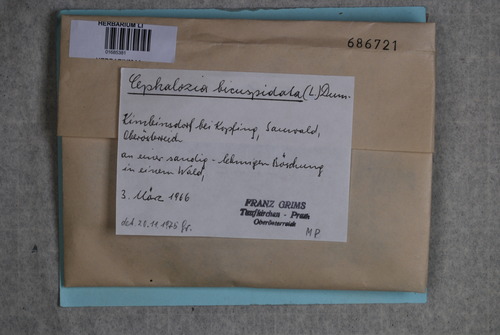 HERBARIUM LI
686721
Cephalozia bicuspidata (L.) Dum.
bei Kopfing, Sauwald,
Oberösterreich
an einer sandig-lehmigen Böschung
in einem Wald,
3. März 1966
FRANZ GRIMS
Taufkirchen - Pram
Oberösterreich
det. 28.11.1975 Gr.
MP.